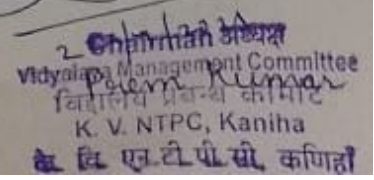 2 Chairman अध्यक्ष
Vidyalaya Management Committee
Prem Kumar
विद्यालय प्रबन्ध कमिटि
K. V. NTPC, Kaniha
के. वि. एन.टी.पी.सी. कणिहाँ